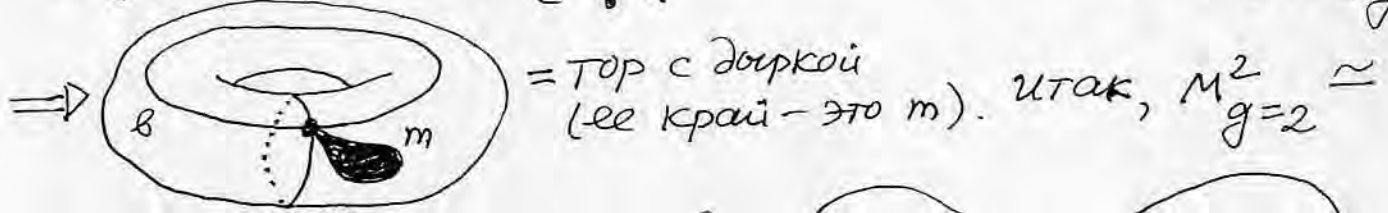 ⇒ в m = тор с дыркой
(ее край – это m). итак, M²_{g=2} ≃